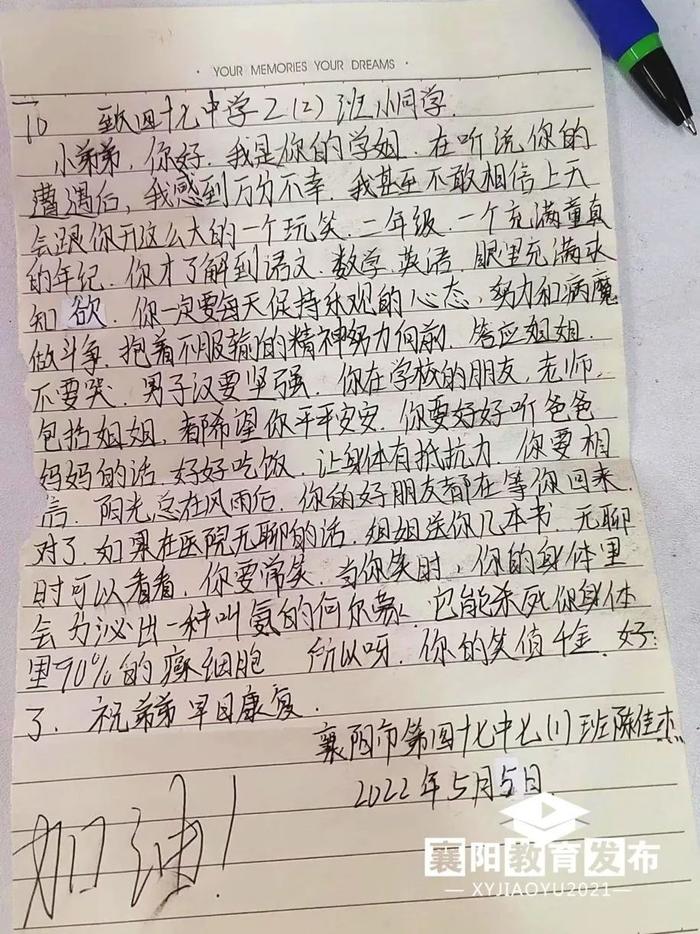 · YOUR MEMORIES YOUR DREAMS ·
致四十七中学2(2)班小同学.
小弟弟,你好.我是你的学姐.在听说你的
遭遇后,我感到万分不幸.我甚至不敢相信上天
会跟你开这么大的一个玩笑.二年级.一个充满童真
的年纪.你才了解到语文.数学.英语.眼里充满求
知欲.你一定要每天保持乐观的心态,努力和病魔
做斗争.抱着不服输的精神努力向前.答应姐姐.
不要哭.男子汉要坚强.你在学校的朋友,老师,
包括姐姐,都希望你平平安安.你要好好听爸爸
妈妈的话.好好吃饭.让身体有抵抗力.你要相
信.阳光总在风雨后.你的好朋友都在等你回来.
对了.如果在医院无聊的话.姐姐送你几本书 无聊
时可以看看.你要常笑.当你笑时,你的身体里
会分泌出一种叫氨的何尔蒙.它能杀死你身体
里90%的癌细胞 所以呀.你的笑值千金.好
了.祝弟弟早日康复.
襄阳市第四十七中七(1)班陈佳
2022年5月5日
加油!
襄阳教育发布
—XYJIAOYU2021—